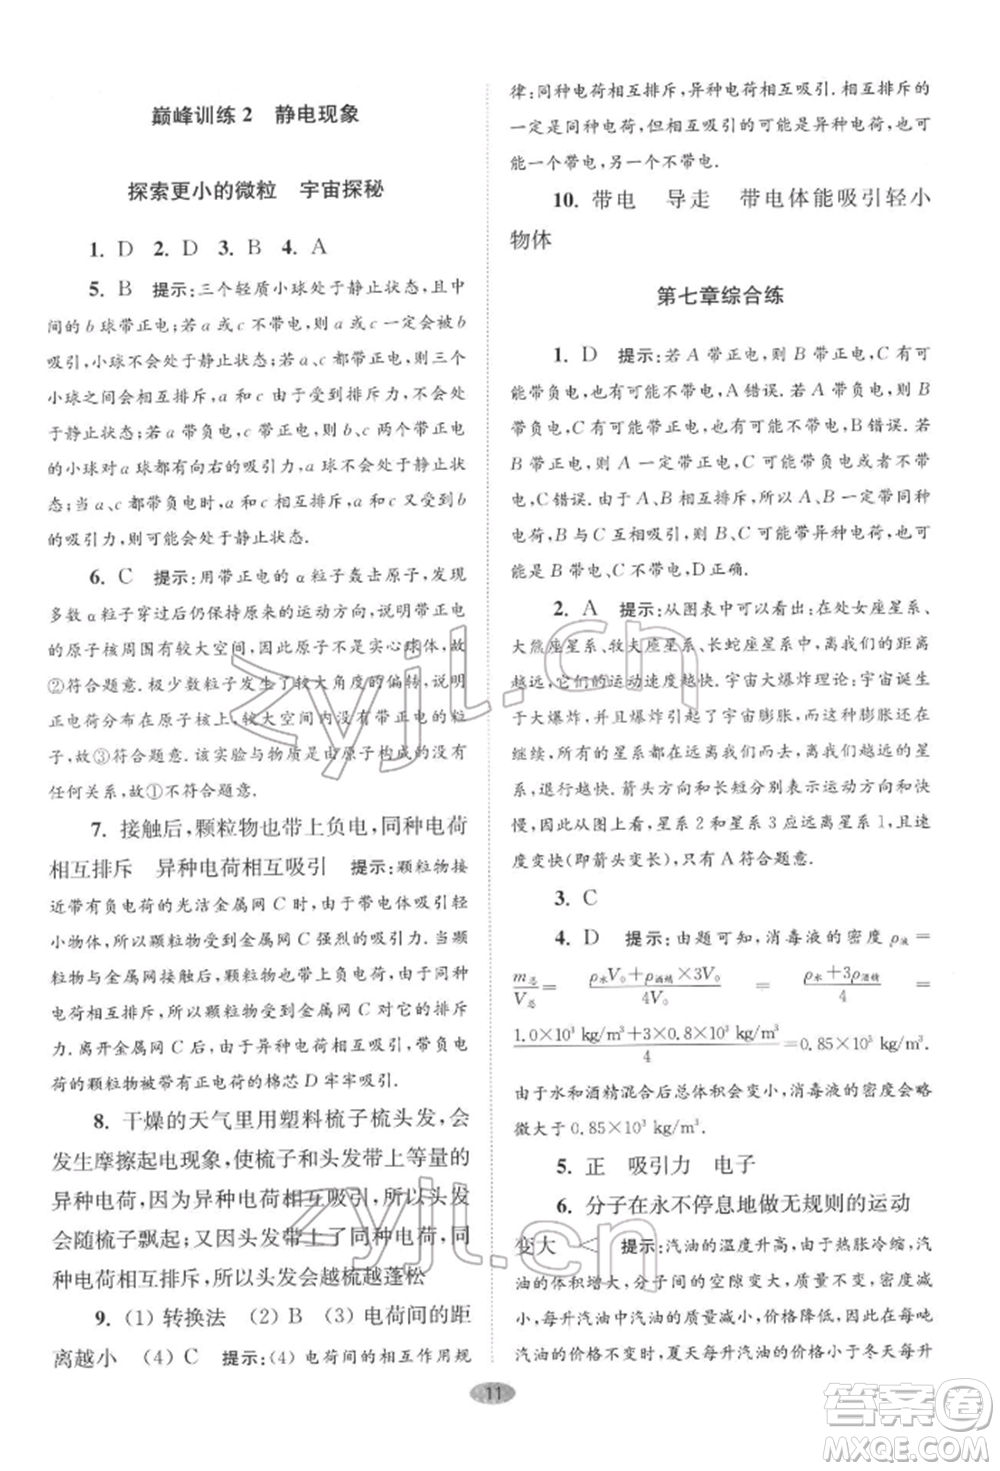 巅峰训练2 静电现象
探索更小的微粒 宇宙探秘
1. D 2. D 3. B 4. A
5. B 提示:三个轻质小球处于静止状态,且中
间的b球带正电;若a或c不带电,则a或c会被b
吸引,小球不会处于静止状态;若a、c都带正电,则三个
小球之间会相互排斥,a和c不会处于图示位置的静
止状态;若a带负电,c带正电,则b、c两个带正电
的小球对a球都有向右的吸引力,a球不会处于静止状
态;当a、c都带负电时,a和c相互排斥,a和c又受到b
的吸引力,则可能会处于静止状态.
6. C 提示:用带正电的α粒子轰击原子,发现
多数α粒子穿过后仍保持原来的运动方向,说明带正电
的原子核周围有较大空间,因此原子不是实心球体,故
②符合题意.极少数粒子发生了较大角度的偏转,说明
正电荷对应在原子核上,较大空间里存在带负电的粒
子,故③符合题意.该实验与物质是由原子构成的没有
任何关系,故①不符合题意.
7. 接触后,颗粒物也带上负电,同种电荷
相互排斥 异种电荷相互吸引 提示:颗粒物接
近带有负电荷的光洁金属网C时,由于带电体吸引轻
小物体,所以颗粒物受到金属网C强烈的吸引力.颗
粒物与金属网C接触后,颗粒物也带上负电,由于同种
电荷相互排斥,所以颗粒物受到金属网C对它的排斥
力.离开金属网C后,由于异种电荷相互吸引,带负电
荷的颗粒物被带有正电荷的棉芯D牢牢吸引.
8. 干燥的天气里用塑料梳子梳头发,会
发生摩擦起电现象,使梳子和头发带上等量的
异种电荷,因为异种电荷相互吸引,所以头发会
随着梳子飘起;又因为头发带上了同种电荷,同
种电荷相互排斥,所以头发会越梳越蓬松
9. (1) 转换法 (2) B (3) 电荷间的距
离越小 (4) C 提示:(4) 电荷间的相互作用规
律:同种电荷相互排斥,异种电荷相互吸引.相互排斥的
一定是同种电荷,但相互吸引的可能是异种电荷,也可
能一个带电,一个不带电.
10. 带电 导走 带电体能吸引轻小
物体
第七章综合练
1. D 提示:若A带正电,则B带正电,C有可
能带负电,也有可能不带电,A错误.若A带负电,则B
带负电,C有可能带正电,也有可能不带电,B错误.若
B带正电,则A一定带正电,C有可能带负电或者不带
电,C错误.由于A、B相互排斥,则A、B一定带同种
电荷,B与C相互吸引,则B、C可能带异种电荷,也可
能B带电,C不带电,D正确.
2. A 提示:从图表中可以看出:在处女座星系、
大熊座星系、牧夫座星系、长蛇座星系中,离我们的距离
越远,它们的运动速度越快.宇宙大爆炸理论:宇宙诞生
于大爆炸,并且爆炸引起了宇宙膨胀,这种膨胀现在还在
继续,所有的星系都在远离我们而去,离我们越远的星
系,退行越快.箭头方向和长短分别表示运动方向和快
慢,所以从图上看,星系2和星系3应远离星系1,且速
度变快(即箭头变长),只有A符合题意.
3. C
4. D 提示:由题可知,消毒液的密度ρ液=
m总/V总=(ρ水V₀+ρ酒精×3V₀)/4V₀=(ρ水+3ρ酒精)/4=
(1.0×10³ kg/m³+3×0.8×10³ kg/m³)/4=0.85×10³ kg/m³.
由于水和酒精混合后总体积变小,消毒液的密度会略
微大于0.85×10³ kg/m³.
5. 正 吸引力 电子
6. 分子在永不停息地做无规则的运动
变大 < 提示:汽油的温度升高,由于热胀冷缩,汽
油的体积增大,分子间的空隙变大.质量不变,体积变大,
每升汽油中汽油的质量减小,价格降低,因此若每吨
汽油的价格不变时,夏天每升汽油的价格小于冬天每升
11
zyjl.cn
zyjl.cn
答案圈
MXQE.COM